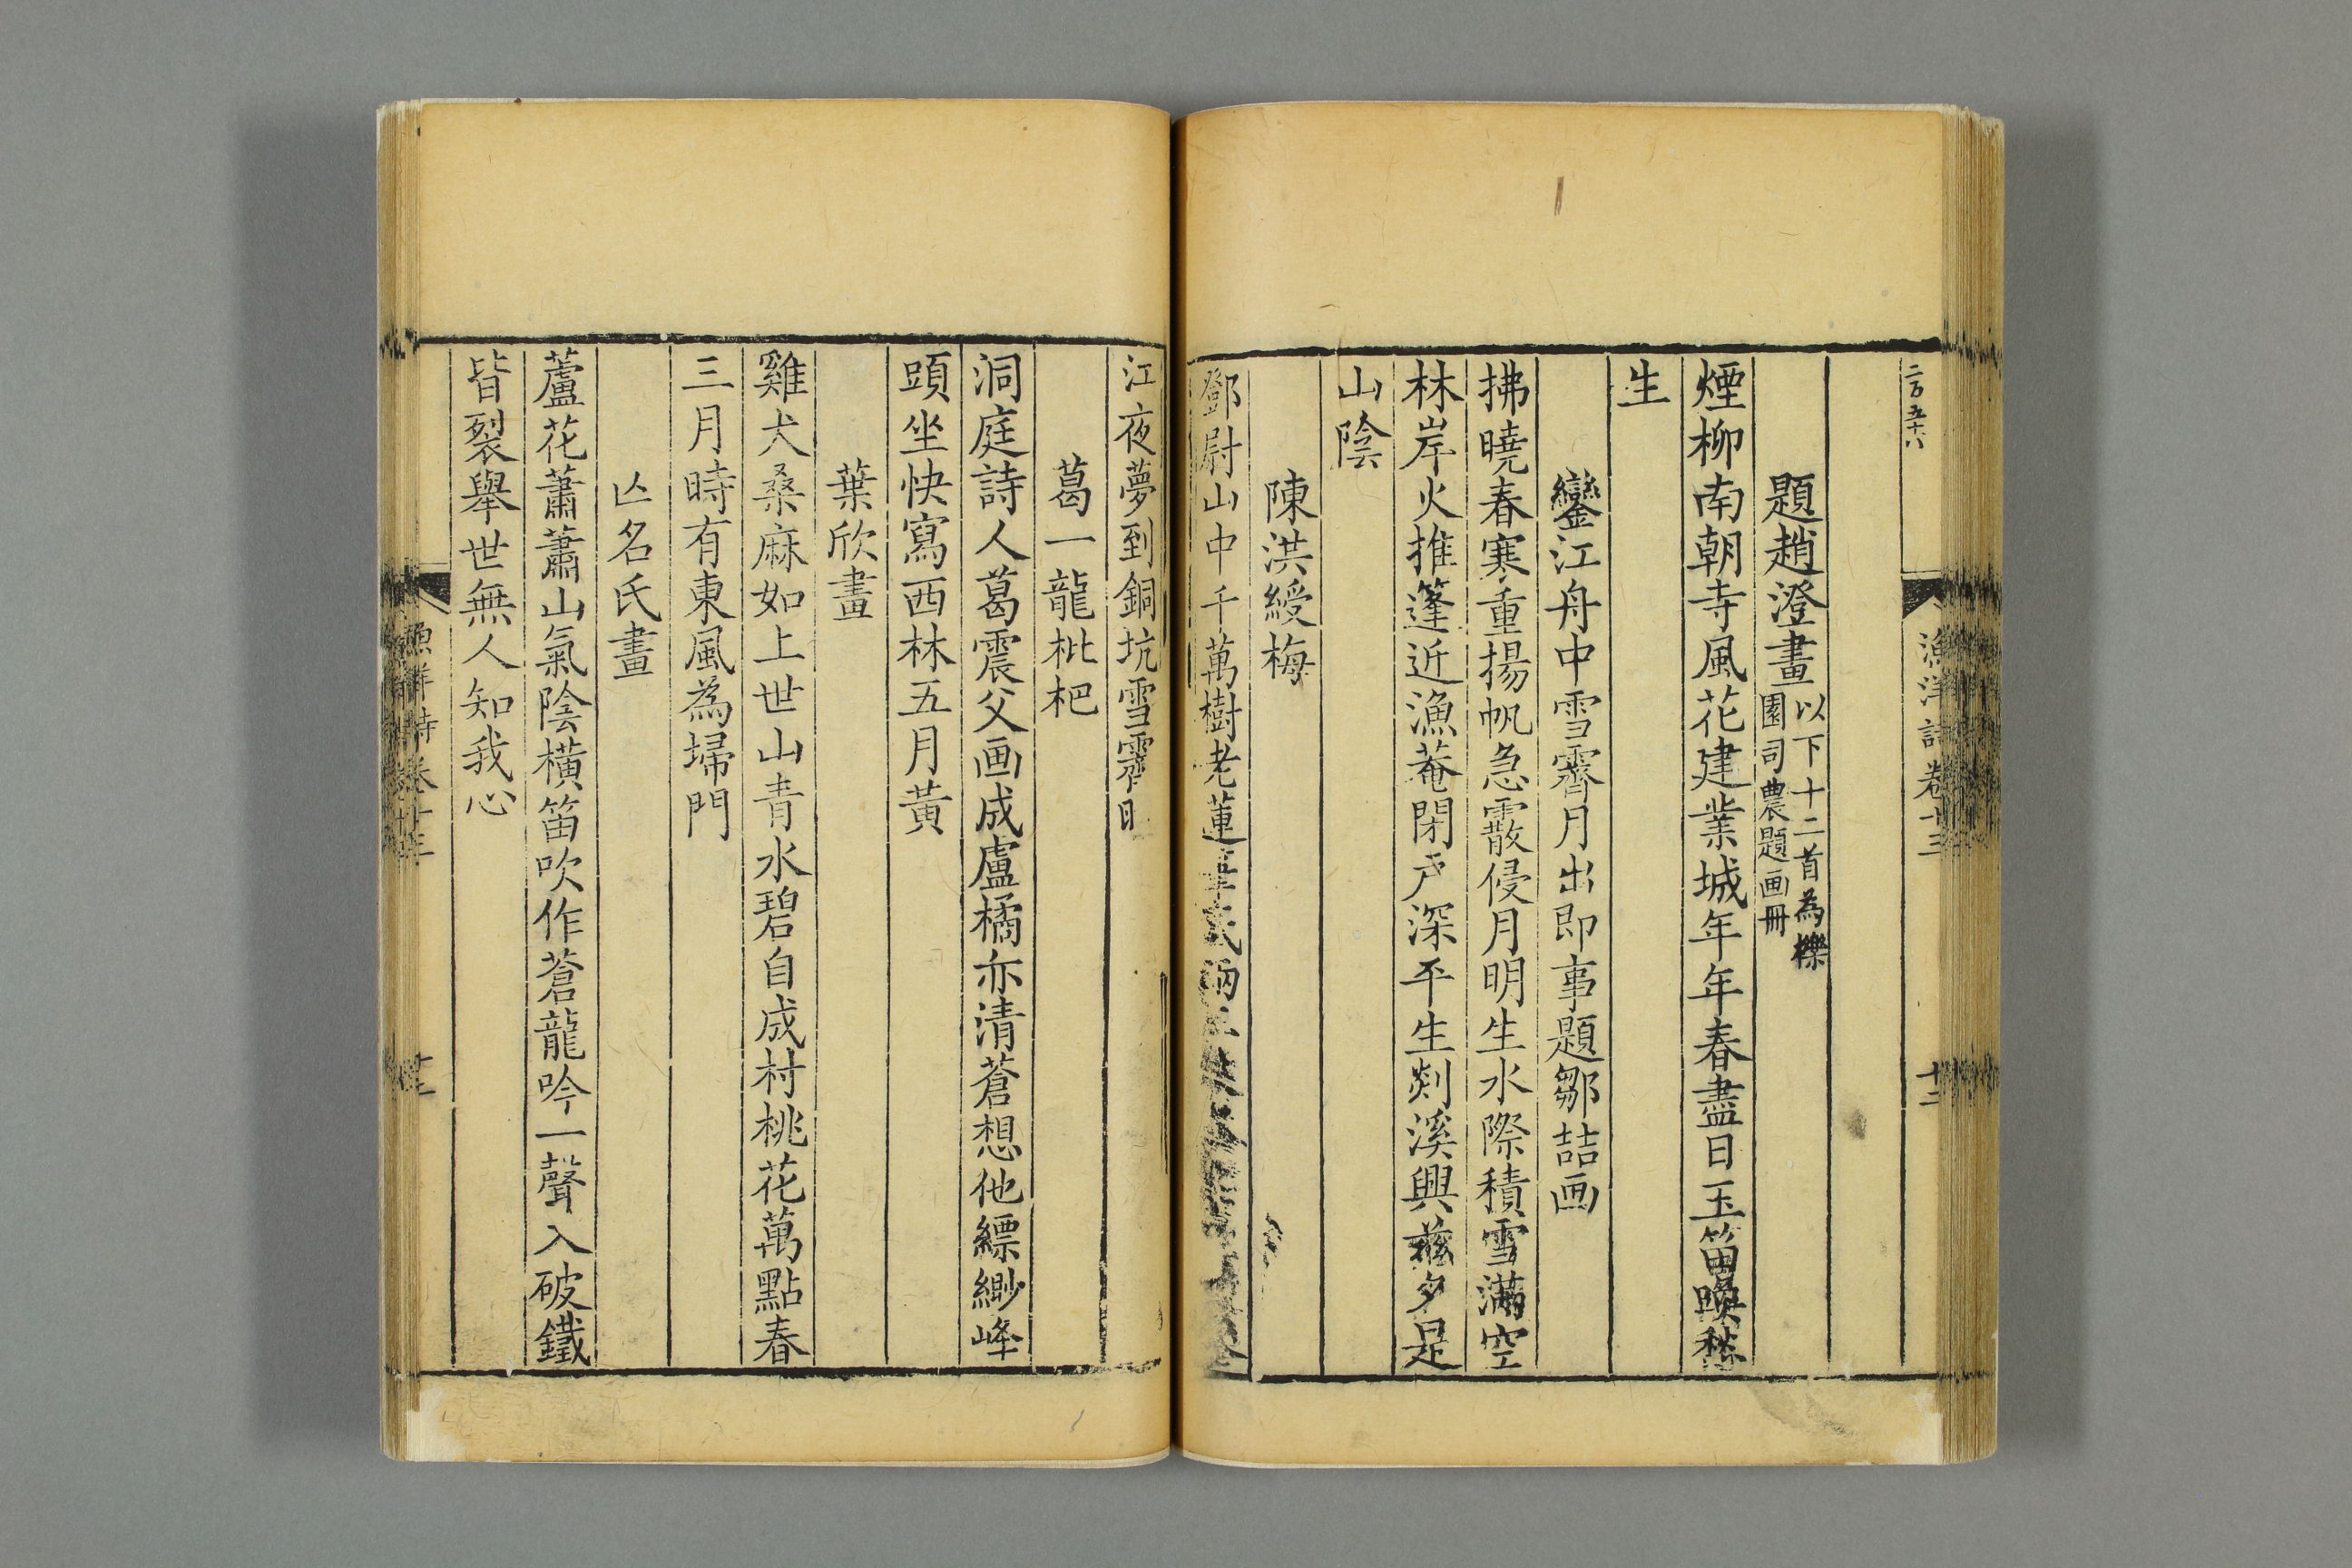 二百五十八
漁洋詩卷十三
十二
題趙澄畫以下十二首為櫟
園司農題画冊
煙柳南朝寺風花建業城年年春盡日玉笛喚愁
生
鑾江舟中雪霽月出即事題鄒喆画
拂曉春寒重揚帆急霰侵月明生水際積雪滿空
林岸火推篷近漁菴閉戶深平生剡溪興茲夕是
山陰
陳洪綬梅
鄧尉山中千萬樹老蓮
江夜夢到銅坑雪霽日
葛一龍枇杷
洞庭詩人葛震父画成盧橘亦清蒼想他縹緲峰
頭坐快寫西林五月黃
葉欣畫
雞犬桑麻如上世山青水碧自成村桃花萬點春
三月時有東風為埽門
亾名氏畫
蘆花蕭蕭山氣陰橫笛吹作蒼龍吟一聲入破鐵
皆裂舉世無人知我心